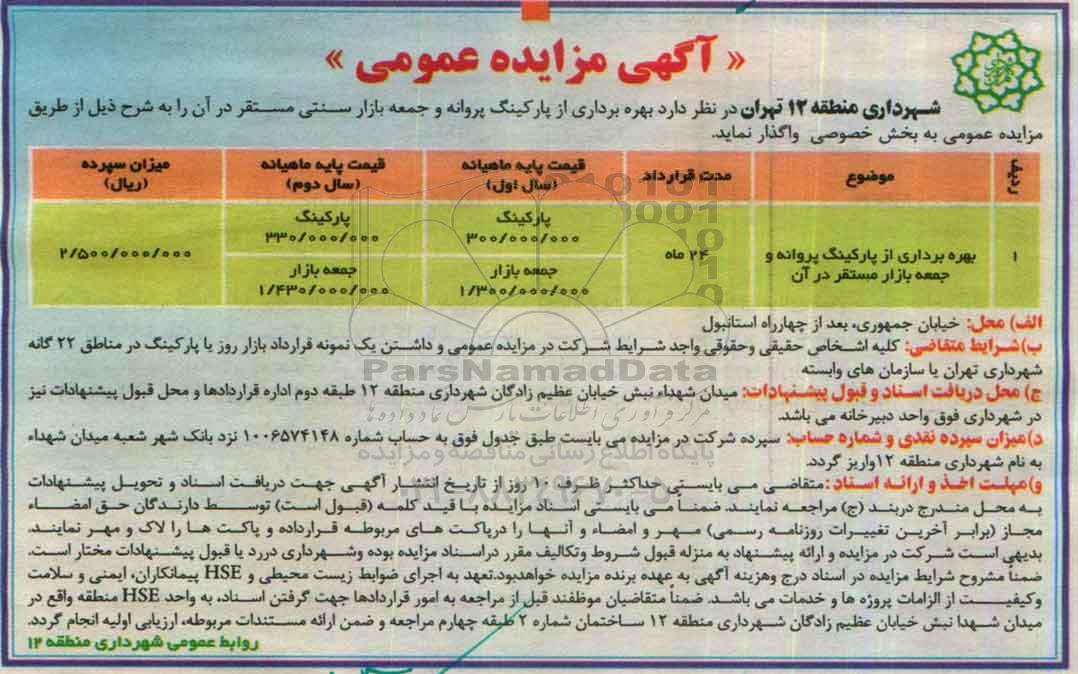 « آگهی مزایده عمومی »
شهرداری منطقه ۱۲ تهران در نظر دارد بهره برداری از پارکینگ پروانه و جمعه بازار سنتی مستقر در آن را به شرح ذیل از طریق
مزایده عمومی به بخش خصوصی واگذار نماید.
ردیف موضوع مدت قرارداد قیمت پایه ماهیانه (سال اول) قیمت پایه ماهیانه (سال دوم) میزان سپرده (ریال)
۱ بهره برداری از پارکینگ پروانه و جمعه بازار مستقر در آن ۲۴ ماه پارکینگ ۳۰۰/۰۰۰/۰۰۰ پارکینگ ۳۳۰/۰۰۰/۰۰۰ ۲/۵۰۰/۰۰۰/۰۰۰
جمعه بازار ۱/۳۰۰/۰۰۰/۰۰۰ جمعه بازار ۱/۴۳۰/۰۰۰/۰۰۰
الف) محل: خیابان جمهوری، بعد از چهارراه استانبول
ب)شرایط متقاضی: کلیه اشخاص حقیقی وحقوقی واجد شرایط شرکت در مزایده عمومی و داشتن یک نمونه قرارداد بازار روز یا پارکینگ در مناطق ۲۲ گانه
شهرداری تهران یا سازمان های وابسته
ج) محل دریافت اسناد و قبول پیشنهادات: میدان شهداء نبش خیابان عظیم زادگان شهرداری منطقه ۱۲ طبقه دوم اداره قراردادها و محل قبول پیشنهادات نیز
در شهرداری فوق واحد دبیرخانه می باشد.
د)میزان سپرده نقدی و شماره حساب: سپرده شرکت در مزایده می بایست طبق جدول فوق به حساب شماره ۱۰۰۶۵۷۴۱۴۸ نزد بانک شهر شعبه میدان شهداء
به نام شهرداری منطقه ۱۲واریز گردد.
و)مهلت اخذ و ارائه اسناد : متقاضی می بایستی حداکثر ظرف ۱۰ روز از تاریخ انتشار آگهی جهت دریافت اسناد و تحویل پیشنهادات
به محل مندرج دربند (ج) مراجعه نمایند. ضمناً می بایستی اسناد مزایده با قید کلمه (قبول است) توسط دارندگان حق امضاء
مجاز (برابر آخرین تغییرات روزنامه رسمی) مهر و امضاء و آنها را درپاکت های مربوطه قرارداده و پاکت ها را لاک و مهر نمایند.
بدیهی است شرکت در مزایده و ارائه پیشنهاد به منزله قبول شروط وتکالیف مقرر دراسناد مزایده بوده وشهرداری دررد یا قبول پیشنهادات مختار است.
ضمناً مشروح شرایط مزایده در اسناد درج وهزینه آگهی به عهده برنده مزایده خواهدبود.تعهد به اجرای ضوابط زیست محیطی و HSE پیمانکاران، ایمنی و سلامت
وکیفیت از الزامات پروژه ها و خدمات می باشد. ضمناً متقاضیان موظفند قبل از مراجعه به امور قراردادها جهت گرفتن اسناد، به واحد HSE منطقه واقع در
میدان شهدا نبش خیابان عظیم زادگان شهرداری منطقه ۱۲ ساختمان شماره ۲ طبقه چهارم مراجعه و ضمن ارائه مستندات مربوطه، ارزیابی اولیه انجام گردد.
روابط عمومی شهرداری منطقه ۱۲
ParsNamadData
پایگاه اطلاع رسانی مناقصه و مزایده